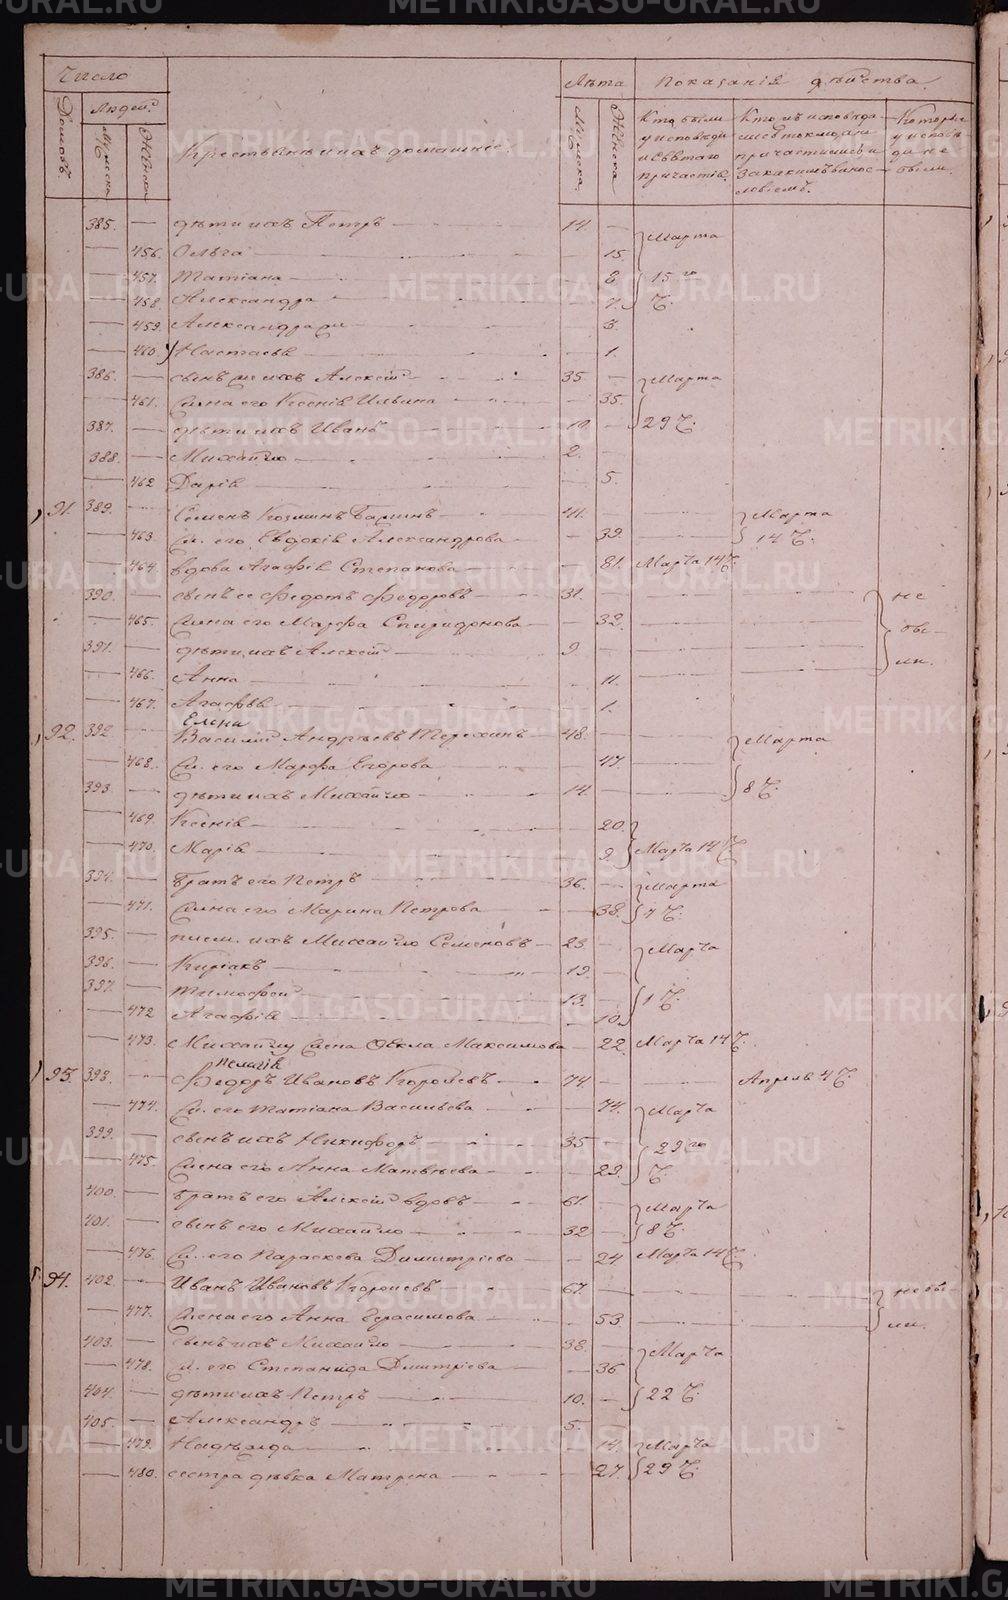 Число
Лѣта Показанiя дѣйства.
Домовъ. Людей. Мужеска Женска
Крестьяне и ихъ домашнiе.
Мужеска. Женска
Кто были у исповѣди и святаго причастiя.
Которые у исповѣди не были.
385. — дѣти ихъ Петръ 14. — Марта
— 456. Ольга — 15.
— 457. Татiана — 8 15 го
— 458. Александра — 7. Ч.
— 459. Александра — 3.
— 460. Настасья — 1.
386. — сынъ ихъ Алексiй 35 — Марта
— 461. жена его Ксенiя Ильина — 35. 29 Ч.
387. — дѣти ихъ Иванъ 10 —
388. — Михайло 2. —
— 462 Дарiя — 5.
91. 389. — Семенъ Козминъ 41. — Марта
— 463. ж. его Евдокiя Александрова — 39. 14 Ч.
— 464. вдова Агафiя Степанова — 81. Марта 14 Ч.
390. — сынъ ее Федотъ Федоровъ 31. — не
— 465. жена его Марфа Спиридонова — 32. бы-
391. — дѣти ихъ Алексiй 9 — ли.
— 466. Анна — 11.
— 467. Агафья — 1.
Елена
92. 392 — Василiй Андреевъ Терехинъ 48. — Марта
— 468. ж. его Марфа Егорова — 47. 8 Ч.
393 — дѣти ихъ Михайло 14. —
— 469. Ксенiя — 20.
— 470. Марiя — 9. Марта 14 Ч.
394. — братъ его Петръ 36. — Марта
— 471. жена его Марина Петрова — 38. 7 Ч.
395. — плем. ихъ Михайло Семеновъ 23 — Марта
396. — Кирiакъ 19 —
397. — Тимофей 13. — 1 Ч.
— 472 Агафiя — 10.
— 473. Михайлы жена Фекла Максимова — 22. Марта 14 Ч.
Пелагiя
93. 398. — Федоръ Ивановъ 74 — Апреля 4 Ч.
— 474. ж. его Татiана Васильева — 74. Марта
399. — сынъ ихъ Никифоръ 35 — 29 го
— 475. жена его Анна Матвѣева — 23. Ч.
400. — братъ его Алексiй вдовъ 61. — Марта
401. — сынъ его Михайло 32 — 8 Ч.
— 476. ж. его Параскева Димитрiева — 24 Марта 14 Ч.
94. 402 — Иванъ Ивановъ 67. — не бы-
— 477. жена его Анна Герасимова — 53. ли.
403. — сынъ ихъ Михайло 38. — Марта
— 478. ж. его Степанида Дмитрiева — 36
404. — дѣти ихъ Петръ 10. — 22 Ч.
405. — Александръ 5. —
— 479. Надѣжда — 14. Марта
— 480. сестра дѣвка Матрена — 27. 29 Ч.
METRIKI.GASO-URAL.RU